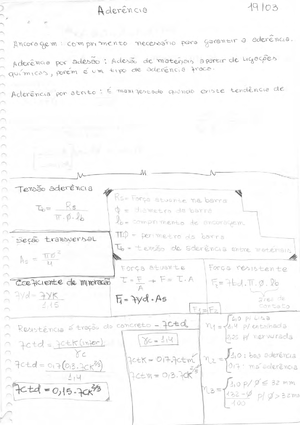 Aderência 19/03
Ancoragem: comprimento necessário para garantir a aderência.
Aderência por adesão: Adesão de materiais a partir de ligações
químicas, porém é um tipo de aderência fraca.
Aderência por atrito: É manifestada quando existe tendência de
Tensão aderência
τb = Rs / π.φ.lb
Rs = Força atuante na barra
φ = diâmetro da barra
lb = comprimento de ancoragem
πφ = perímetro da barra
τb = tensão de aderência entre materiais
Seção transversal
As = πφ² / 4
Coeficiente de minoração
fyd = fyk / 1.15
Força atuante
τ = F/A → F = τ.A
F1 = fyd.As
Força resistente
F2 = fbd.π.φ.lb
F1 = F2
Resistência à tração do concreto = fctd
fctd = fctk(inf) / γc
γc = 1,4
fctd = 0,7(0,3.fck⅔) / 1,4
fctk = 0,7.fctm
fctm = 0,3.fck⅔
fctd = 0,15.fck⅔
η1
η2
0,7 - má aderência
η3
1,0 p/ φ ≤ 32 mm
132-φ / 100 p/ φ > 32mm